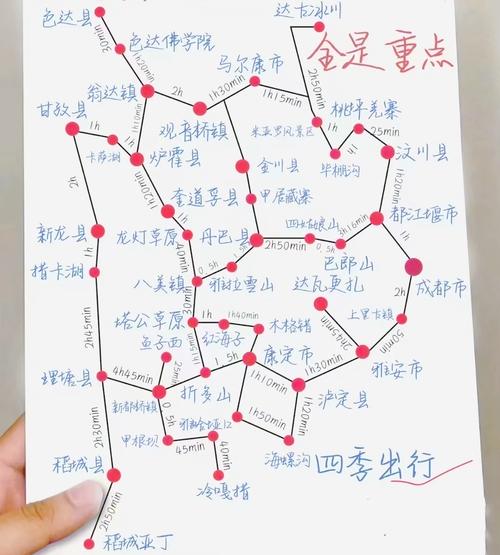 色达县
达古冰川
30min
色达佛学院
全是重点
1h20min
马尔康市
翁达镇
2h
1h15min
2h50min
甘孜县
桃坪羌寨
1h
1h10min
观音桥镇
1h30min
米亚罗风景区
25min
卡萨湖
炉霍县
金川县
毕棚沟
1h
汶川县
2h
1h20min
甲居藏寨
1h20min
新龙县
龙灯草原
40min
丹巴县
四姑娘山
都江堰市
2h50min
0.5h
3h16min
措卡湖
0.5h
1.5h
巴郎山
成都市
八美镇
雅拉雪山
达瓦更扎
2h
30min
2h45min
塔公草原
1h
1h40min
木格措
2h45min
上里古镇
鱼子西
1h15min
红海子
50min
25min
1.5h
康定市
理塘县
4h45min
1h30min
雅安市
1h10min
新都桥镇
折多山
泸定县
2h30min
0.5h
1h20min
甲根坝
1h50min
45min
40min
稻城县
海螺沟
四季出行
冷嘎措
2h50min
稻城亚丁